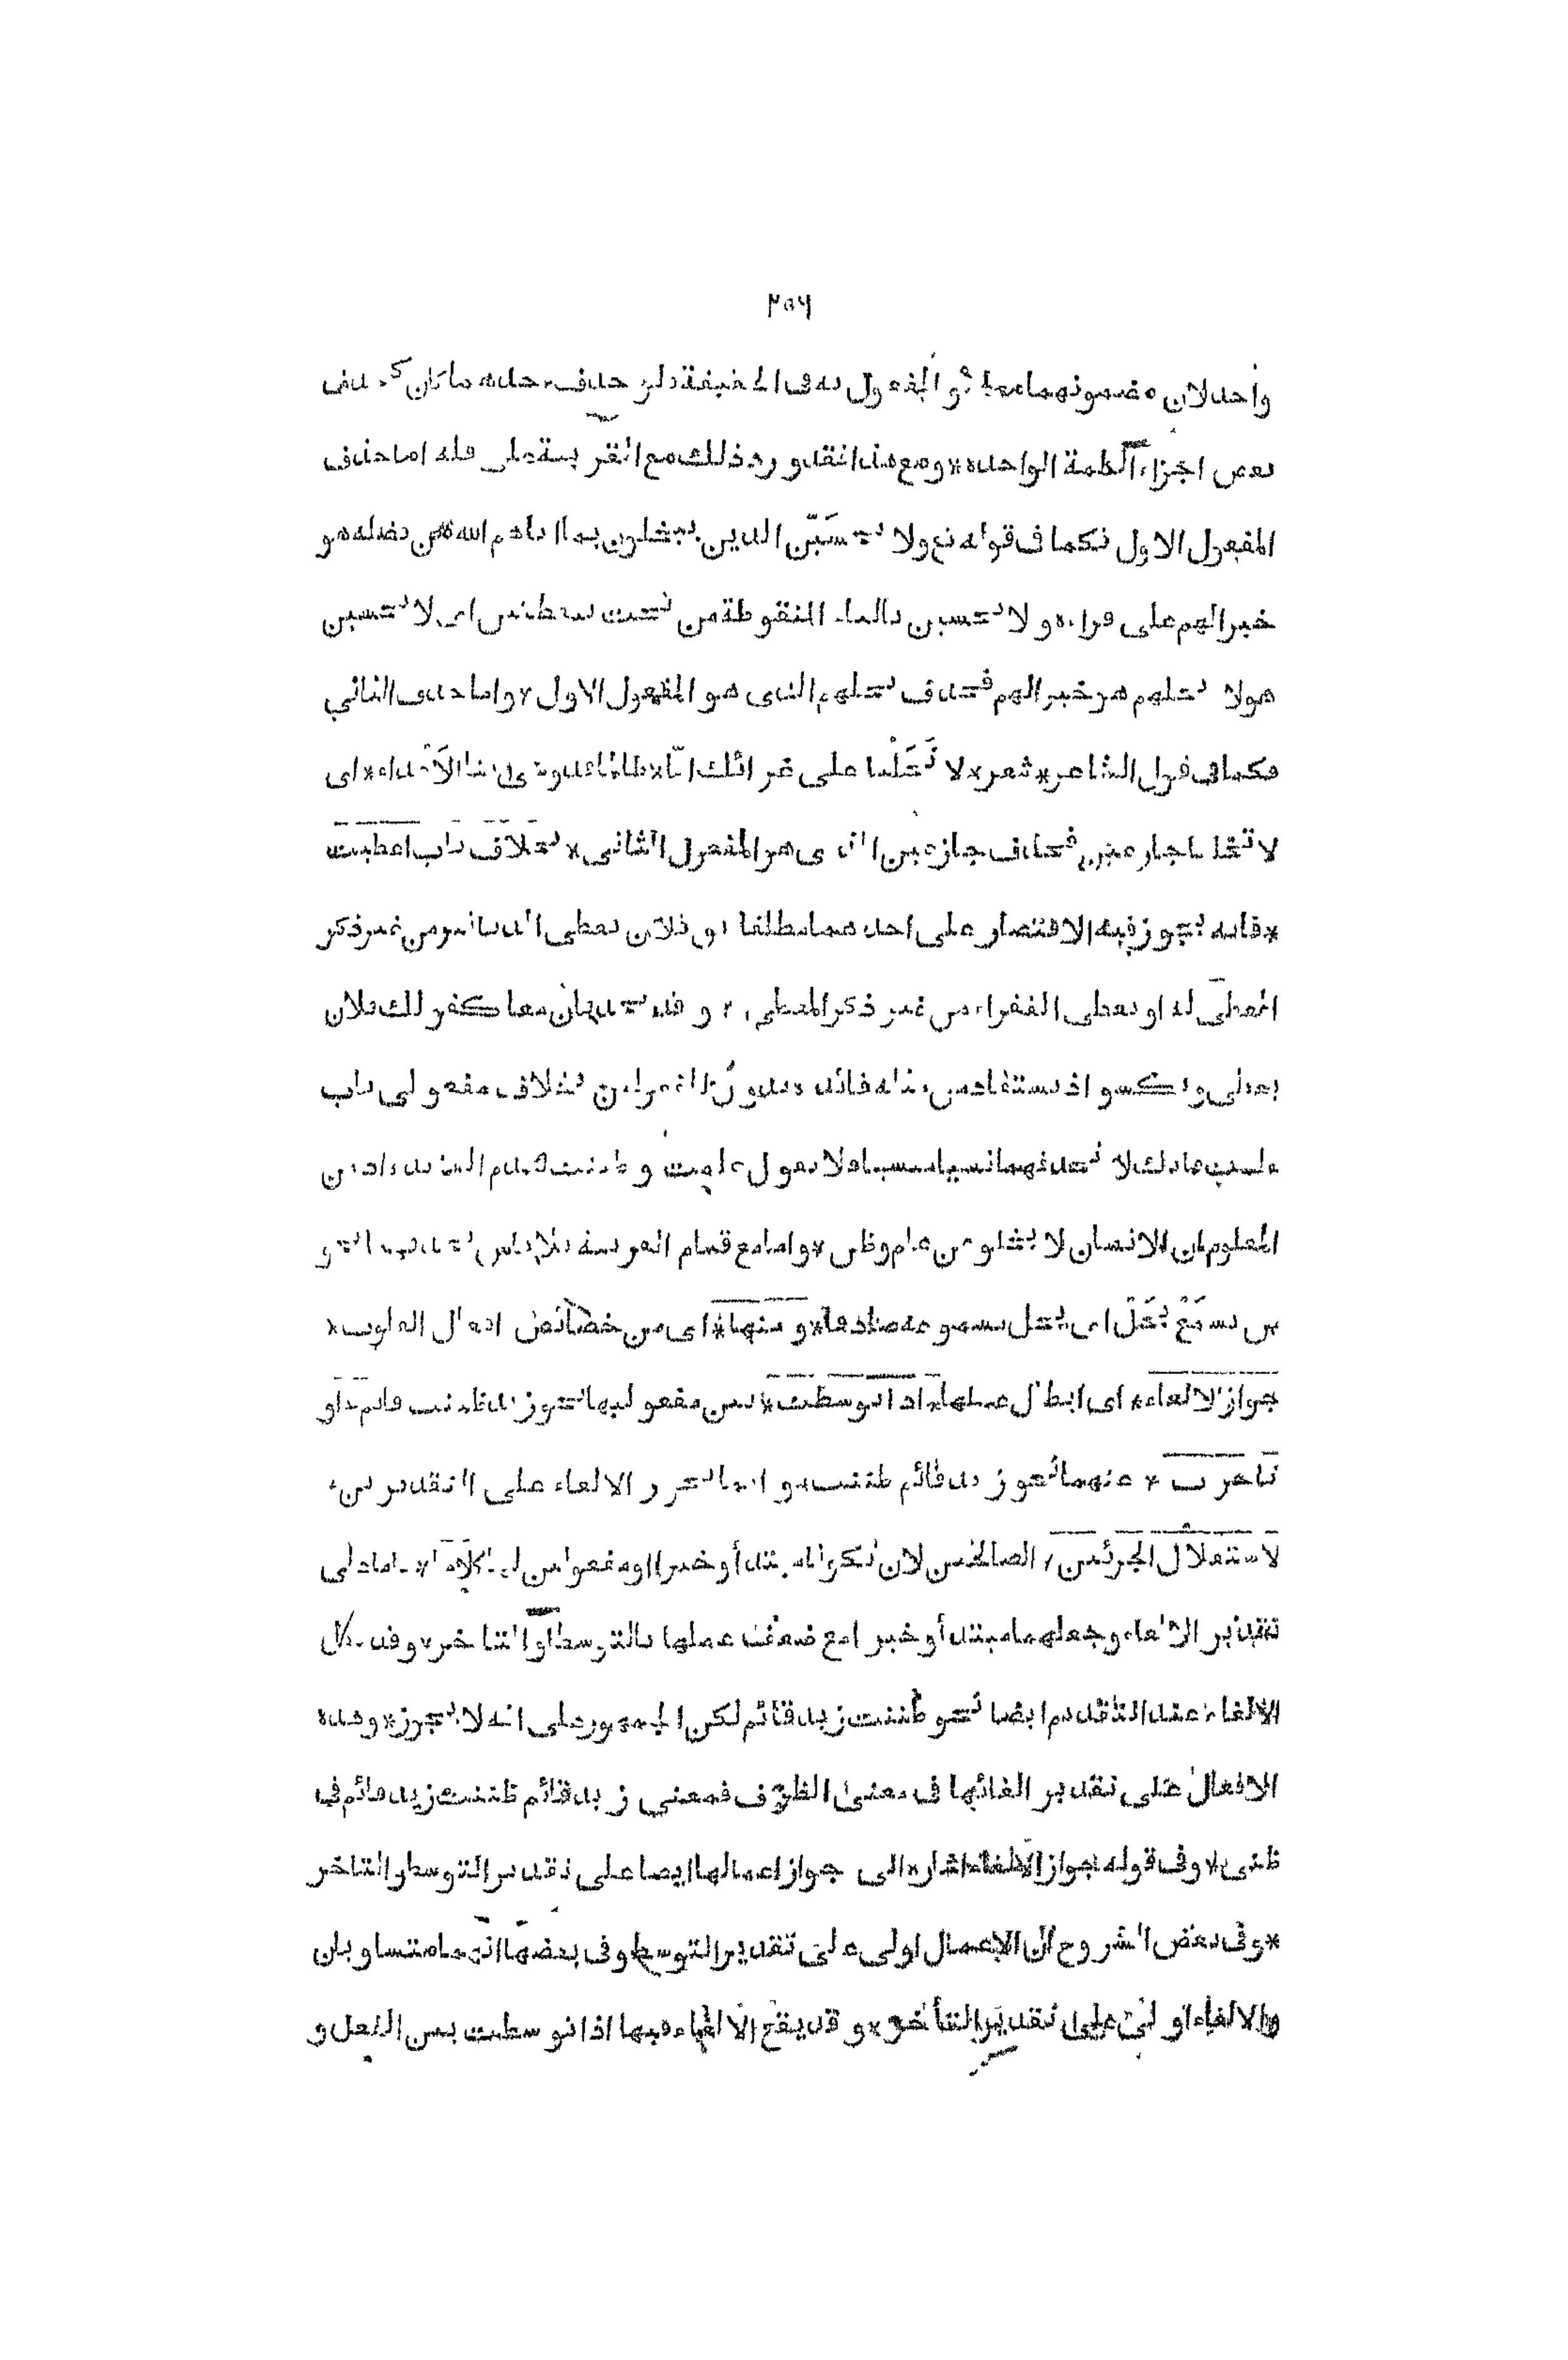 ٢٥٦
واحد لان مضمونهما معا هو المفعول به فى الحقيقة فلو حذف احدهما كان كحذف
بعض اجزاء الكلمة الواحدة * ومع هذا فقد ورد ذلك مع القرينة على قلة اما حذف
المفعول الاول فكما فى قوله تع ولا تحسَبَّن الذين يبخلون بما اتاهم الله من فضله هو
خيرا لهم على قراءة ولا يحسبن بالياء المنقوطة من تحت بنقطتين اى لا يحسبن
هولاء بخلهم هو خيرا لهم فحذف بخلهم الذى هو المفعول الاول * واما حذف الثانى
فكما فى قول الشاعر * شعر * لا تَخَلْنا على غرائك انّا * طالما قد وشى بنا الاَعْداء * اى
لا تخلنا جازعين فحذف جازعين الذى هو المفعول الثانى * بخلاف باب اعطيت
* فانه يجوز فيه الاقتصار على احدهما مطلقا يق فلان يعطى الدنانير من غير ذكر
المعطى له او يعطى الفقراء من غير ذكر المعطى * و قد يحذفان معا كقولك فلان
يعطى و يكسو اذ يستفاد من مثله فائدة بدون المفعولين بخلاف مفعولى باب
علمت فانك لا تحذفهما نسيا منسيا فلا تقول علمت و ظننت لعدم الفائدة اذ من
المعلوم ان الانسان لا يخلو من علم وظن * واما مع قيام القرينة فلا باس بحذفهما نحو
من يسمَعْ يخَلْ اى يخل مسموعه صادقا * و منها * اى من خصائص افعال القلوب *
جواز الالغاء * اى ابطال عملها * اذا توسطت * بين مفعوليها نحو زيد ظننت قائم * او
تاخرت * عنهما نحو زيد قائم ظننت * و انما يجوز الالغاء على التقديرين *
لاستقلال الجزئين * الصالحين لان يكونا مبتدأ و خبرا او مفعولين لها * كلاما * تاما على
تقدير الالغاء وجعلهما مبتدأ و خبرا مع ضعف عملها بالتوسط او التاخر * وقد نقل
الالغاء عند التقديم ايضا نحو ظننت زيد قائم لكن الجمهور على انه لا يجوز * وهذه
الافعال على تقدير الغائها فى معنى الظرف فمعنى زيد قائم ظننت زيد قائم فى
ظنى * وفى قوله جواز الالغاء اشارة الى جواز اعمالها ايضا على تقدير التوسط والتاخر
* وفى بعض الشروح ان الاعمال اولى على تقدير التوسط وفى بعضها انهما متساويان
والالغاء اولى على تقدير التأخر * و قد يقع الالغاء فيها اذا توسطت بين الفعل و